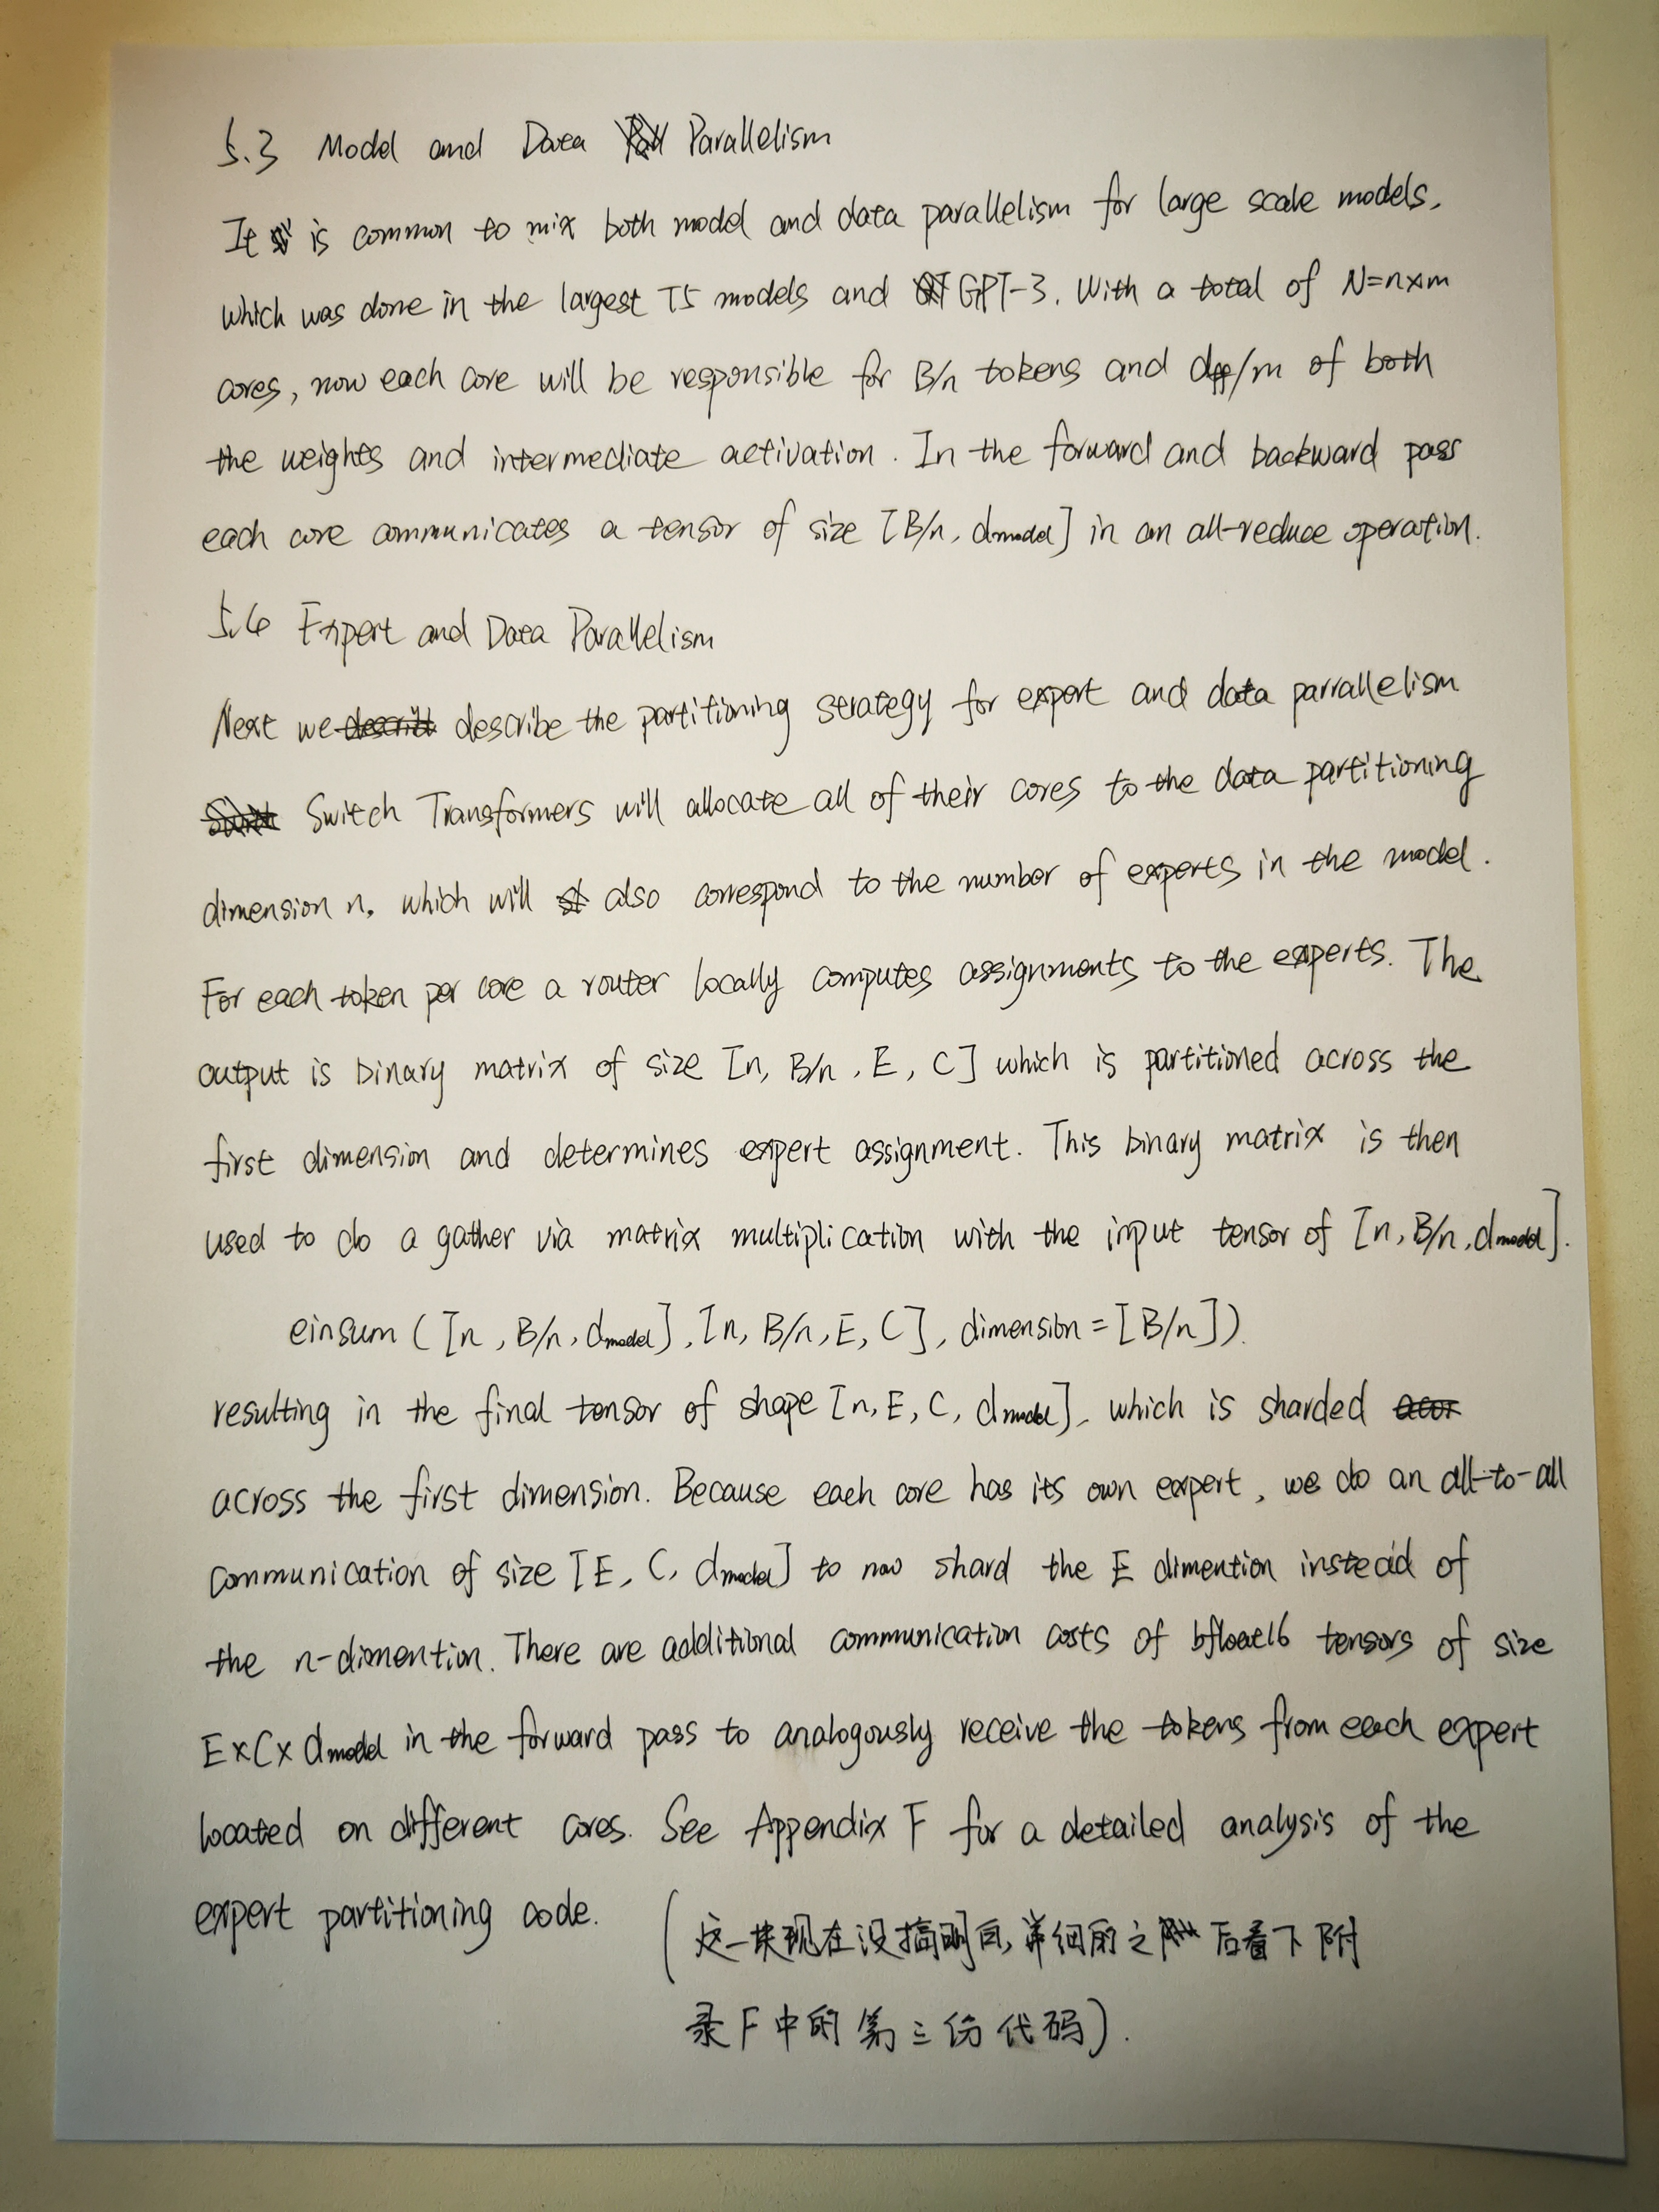 5.3 Model and Data Parallelism
It is common to mix both model and data parallelism for large scale models,
which was done in the largest T5 models and GPT-3. With a total of N=n×m
cores, now each core will be responsible for B/n tokens and dff/m of both
the weights and intermediate activation. In the forward and backward pass
each core communicates a tensor of size [B/n, dmodel] in an all-reduce operation.
5.6 Expert and Data Parallelism
Next we describe the partitioning strategy for expert and data parrallelism
Switch Transformers will allocate all of their cores to the data partitioning
dimension n, which will also correspond to the number of experts in the model.
For each token per core a router locally computes assignments to the experts. The
output is binary matrix of size [n, B/n, E, C] which is partitioned across the
first dimension and determines expert assignment. This binary matrix is then
used to do a gather via matrix multiplication with the input tensor of [n, B/n, dmodel].
einsum ([n, B/n, dmodel], [n, B/n, E, C], dimension = [B/n]).
resulting in the final tensor of shape [n, E, C, dmodel], which is sharded
across the first dimension. Because each core has its own expert, we do an all-to-all
communication of size [E, C, dmodel] to now shard the E dimention instead of
the n-dimention. There are additional communication costs of bfloat16 tensors of size
E×C×dmodel in the forward pass to analogously receive the tokens from each expert
located on different cores. See Appendix F for a detailed analysis of the
expert partitioning code.
(这一块现在没搞明白,详细的之后看下附
录F中的第三份代码).